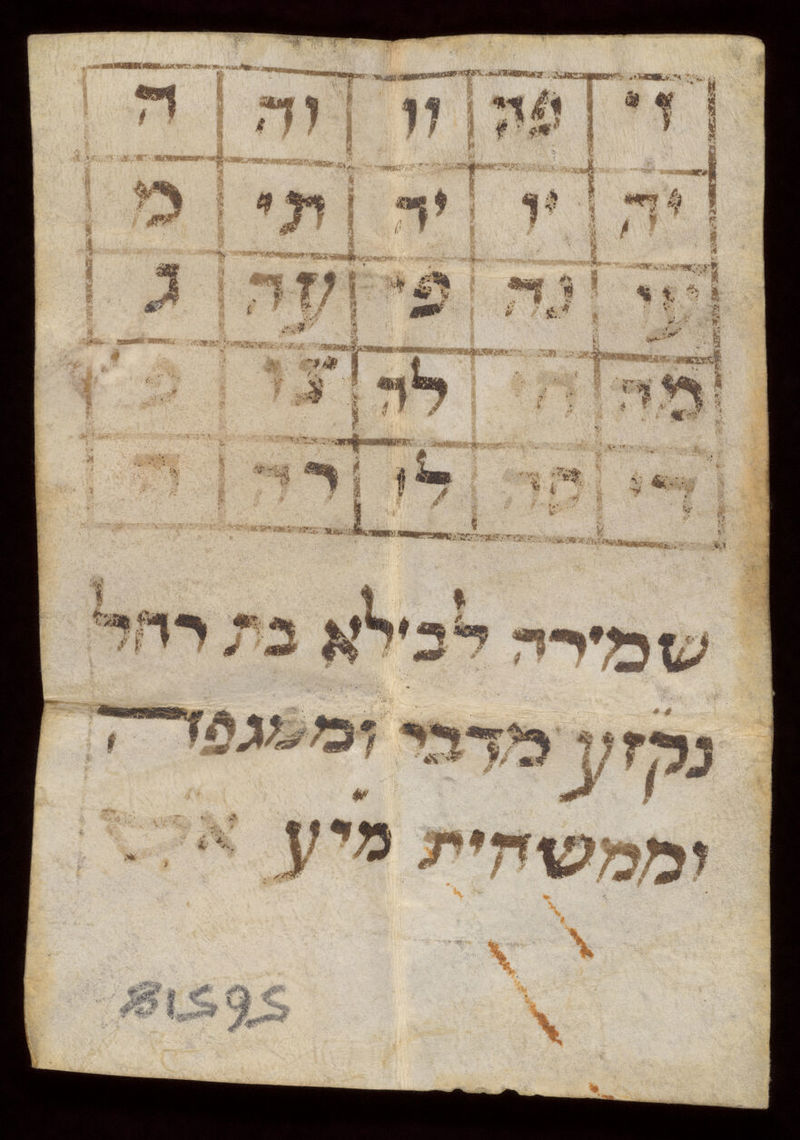 וי פה וו וה ה
יה יו יה תי מ
עו נה פי עה ג
מה חי לה צו פ
די סה לו רה ה
שמירה לבילא בת רחל
נק"זע מדבר וממגפה
וממשחית מ"וע א"ס
56518